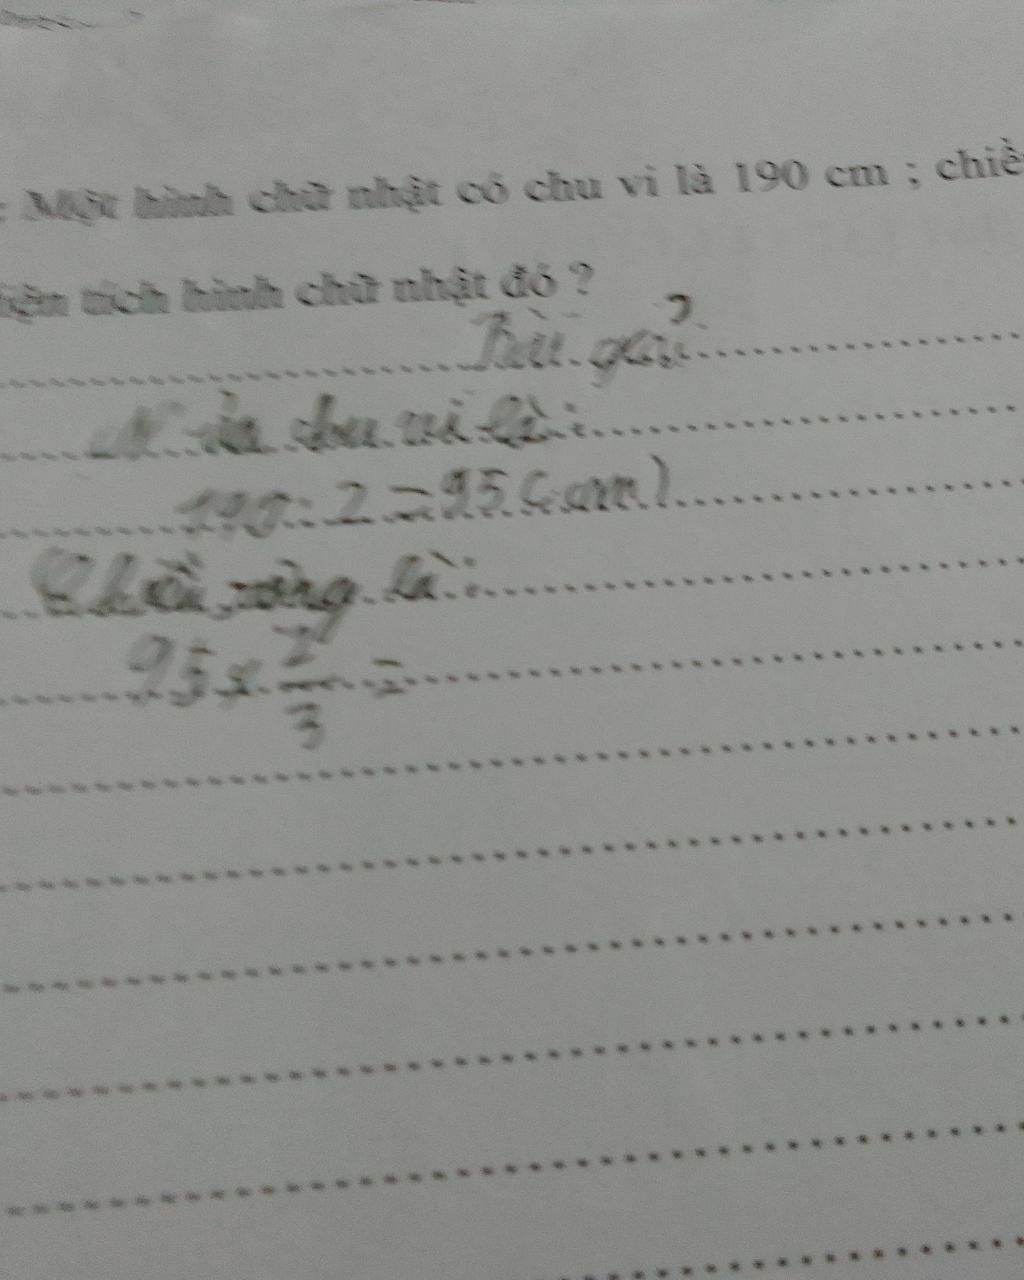 : Một hình chữ nhật có chu vi là 190 cm ; chiề
iện tích hình chữ nhật đó ?
Bài giải
Nửa chu vi là:
190: 2 = 95 (cm)
Chiều rộng là:
95 x 2/3 =